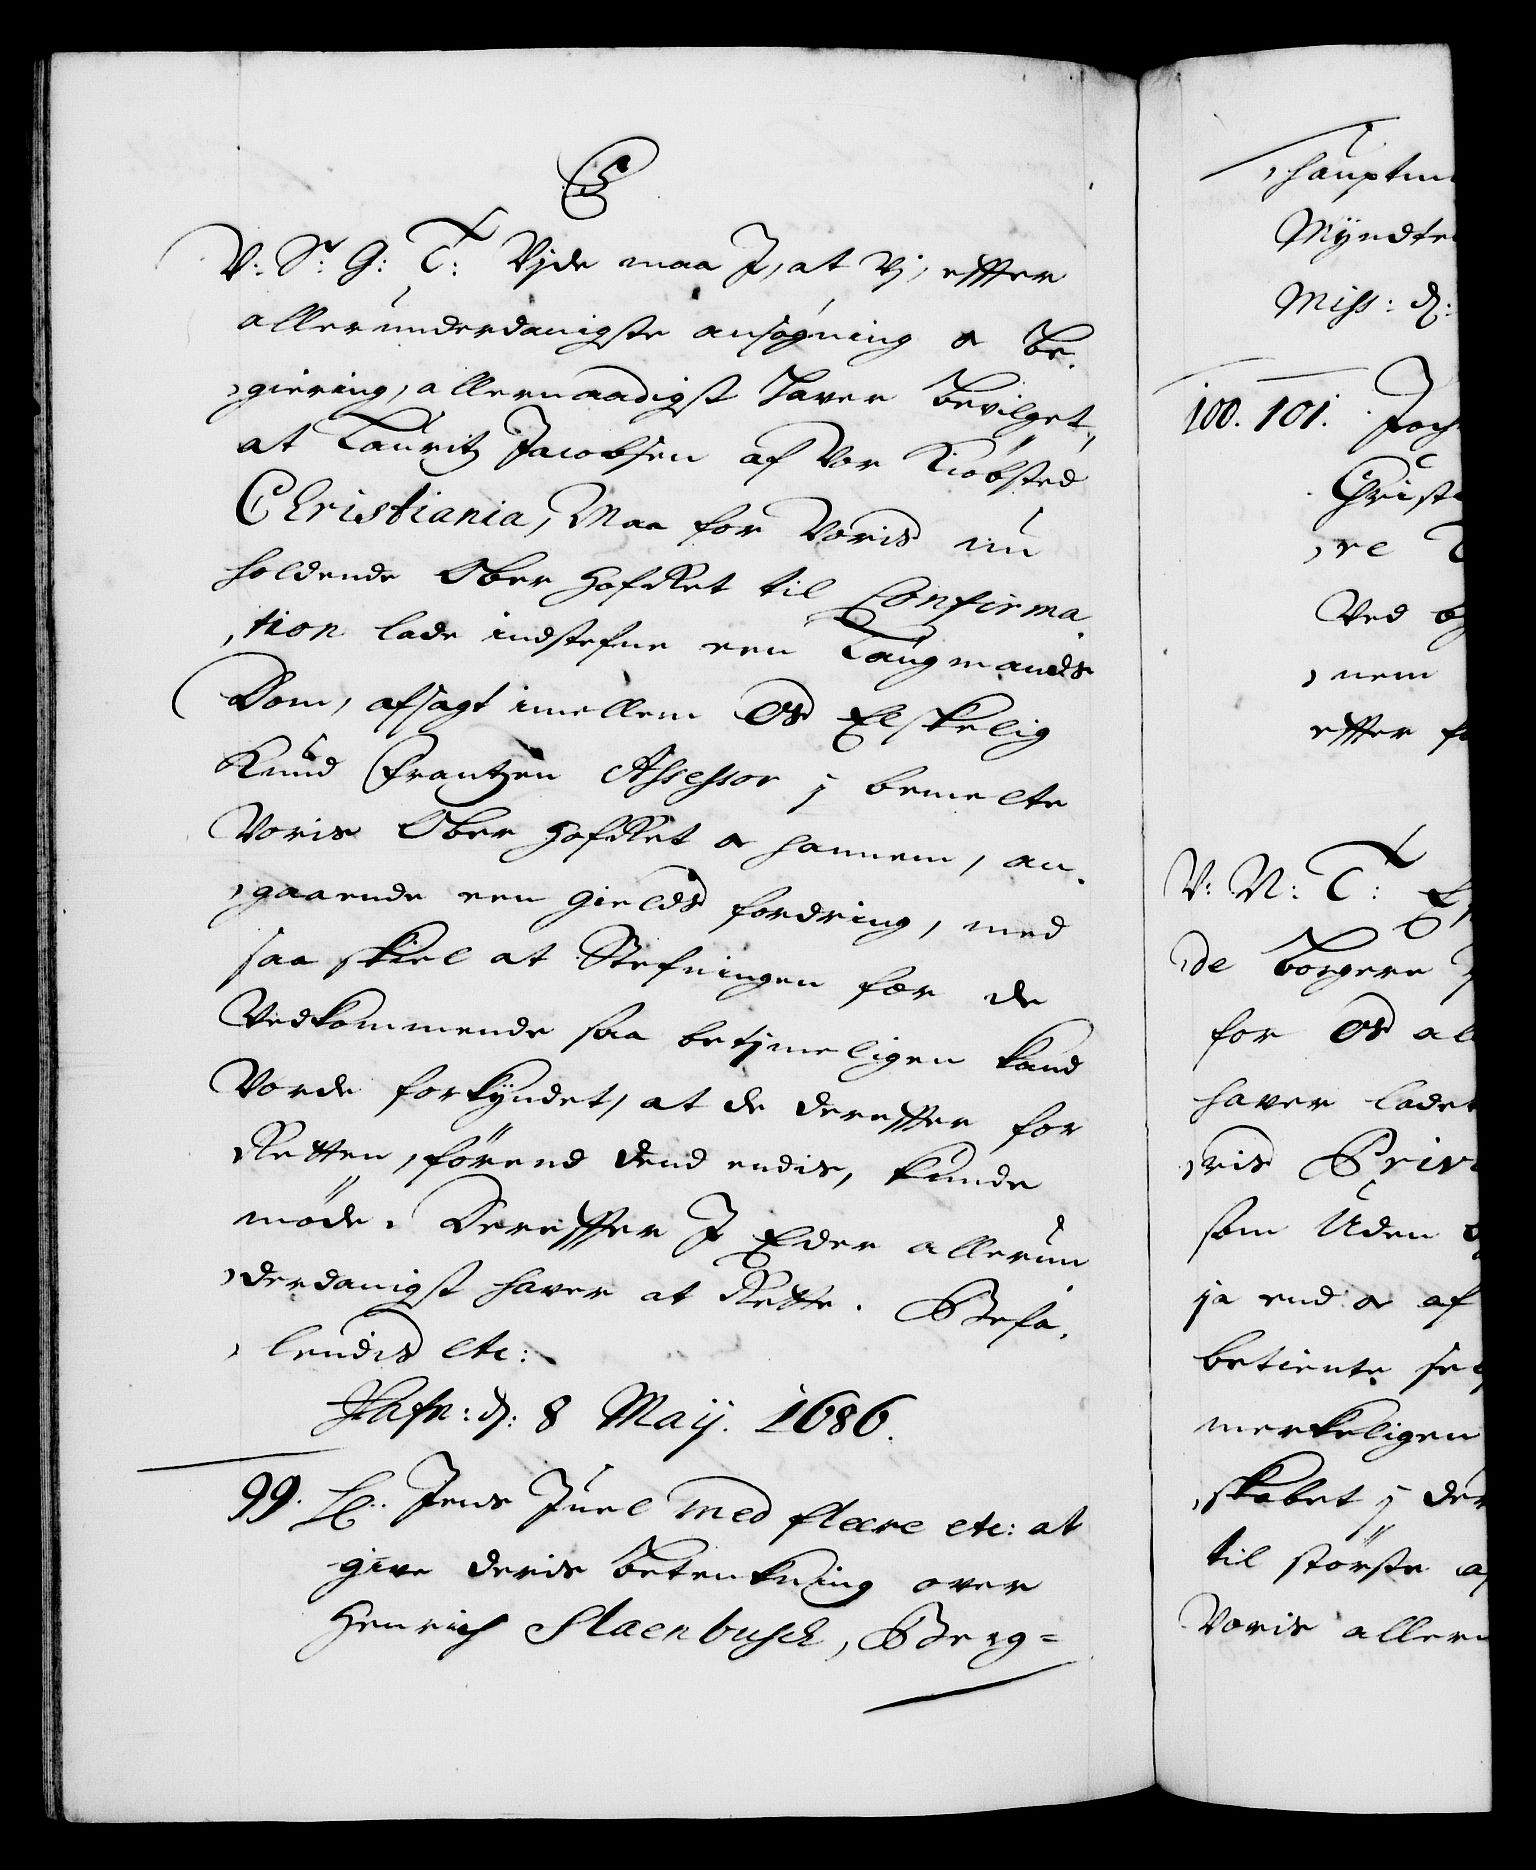 V: Sr: G: T: Vide maa J, at Vj, effter
allerunderdanigste ansøgning oc be,
,giering, allernaadigst haver bevilget,
at Lauritz Jacobsen af Vor Kiøbsted
Christiania, Maa for Voris nu
holdende Ober Hof Ret til Confirma
,tion lade indstefne een Laugmands
Dom, afsagt imellem Os Elskelig
Knud Frantzen Assessor j bemelte
Voris Ober Hof Ret oc hannem, an,
,gaaende een Gields fordring, med
saa skiel at Stefningen for de
Vedkommende saa betjmeligen kand
Vorde forkyndet, at de dereffter for
Retten, førend dend endis, kunde
møde. Dereffter J Eder allerun
,derdanigst haver at Rette. Befa,
,lendis etc:
Hafn: d: 8 Maij. 1686.
99. Hr: Jens Juel med fleere etc: at
give deris betenkning over
Henrich Slaenbusch, Berg=
Hauptm
Myndte
Miss: d:
100. 101. Joch
Christ
,re
Ved
,nem
effter
V: N: T:
de borgere
for Os al
haver ladet
,ris Priv
som Uden
ja end oc af
betiente
merkeligen
,skabet j der
til største
Voris aller